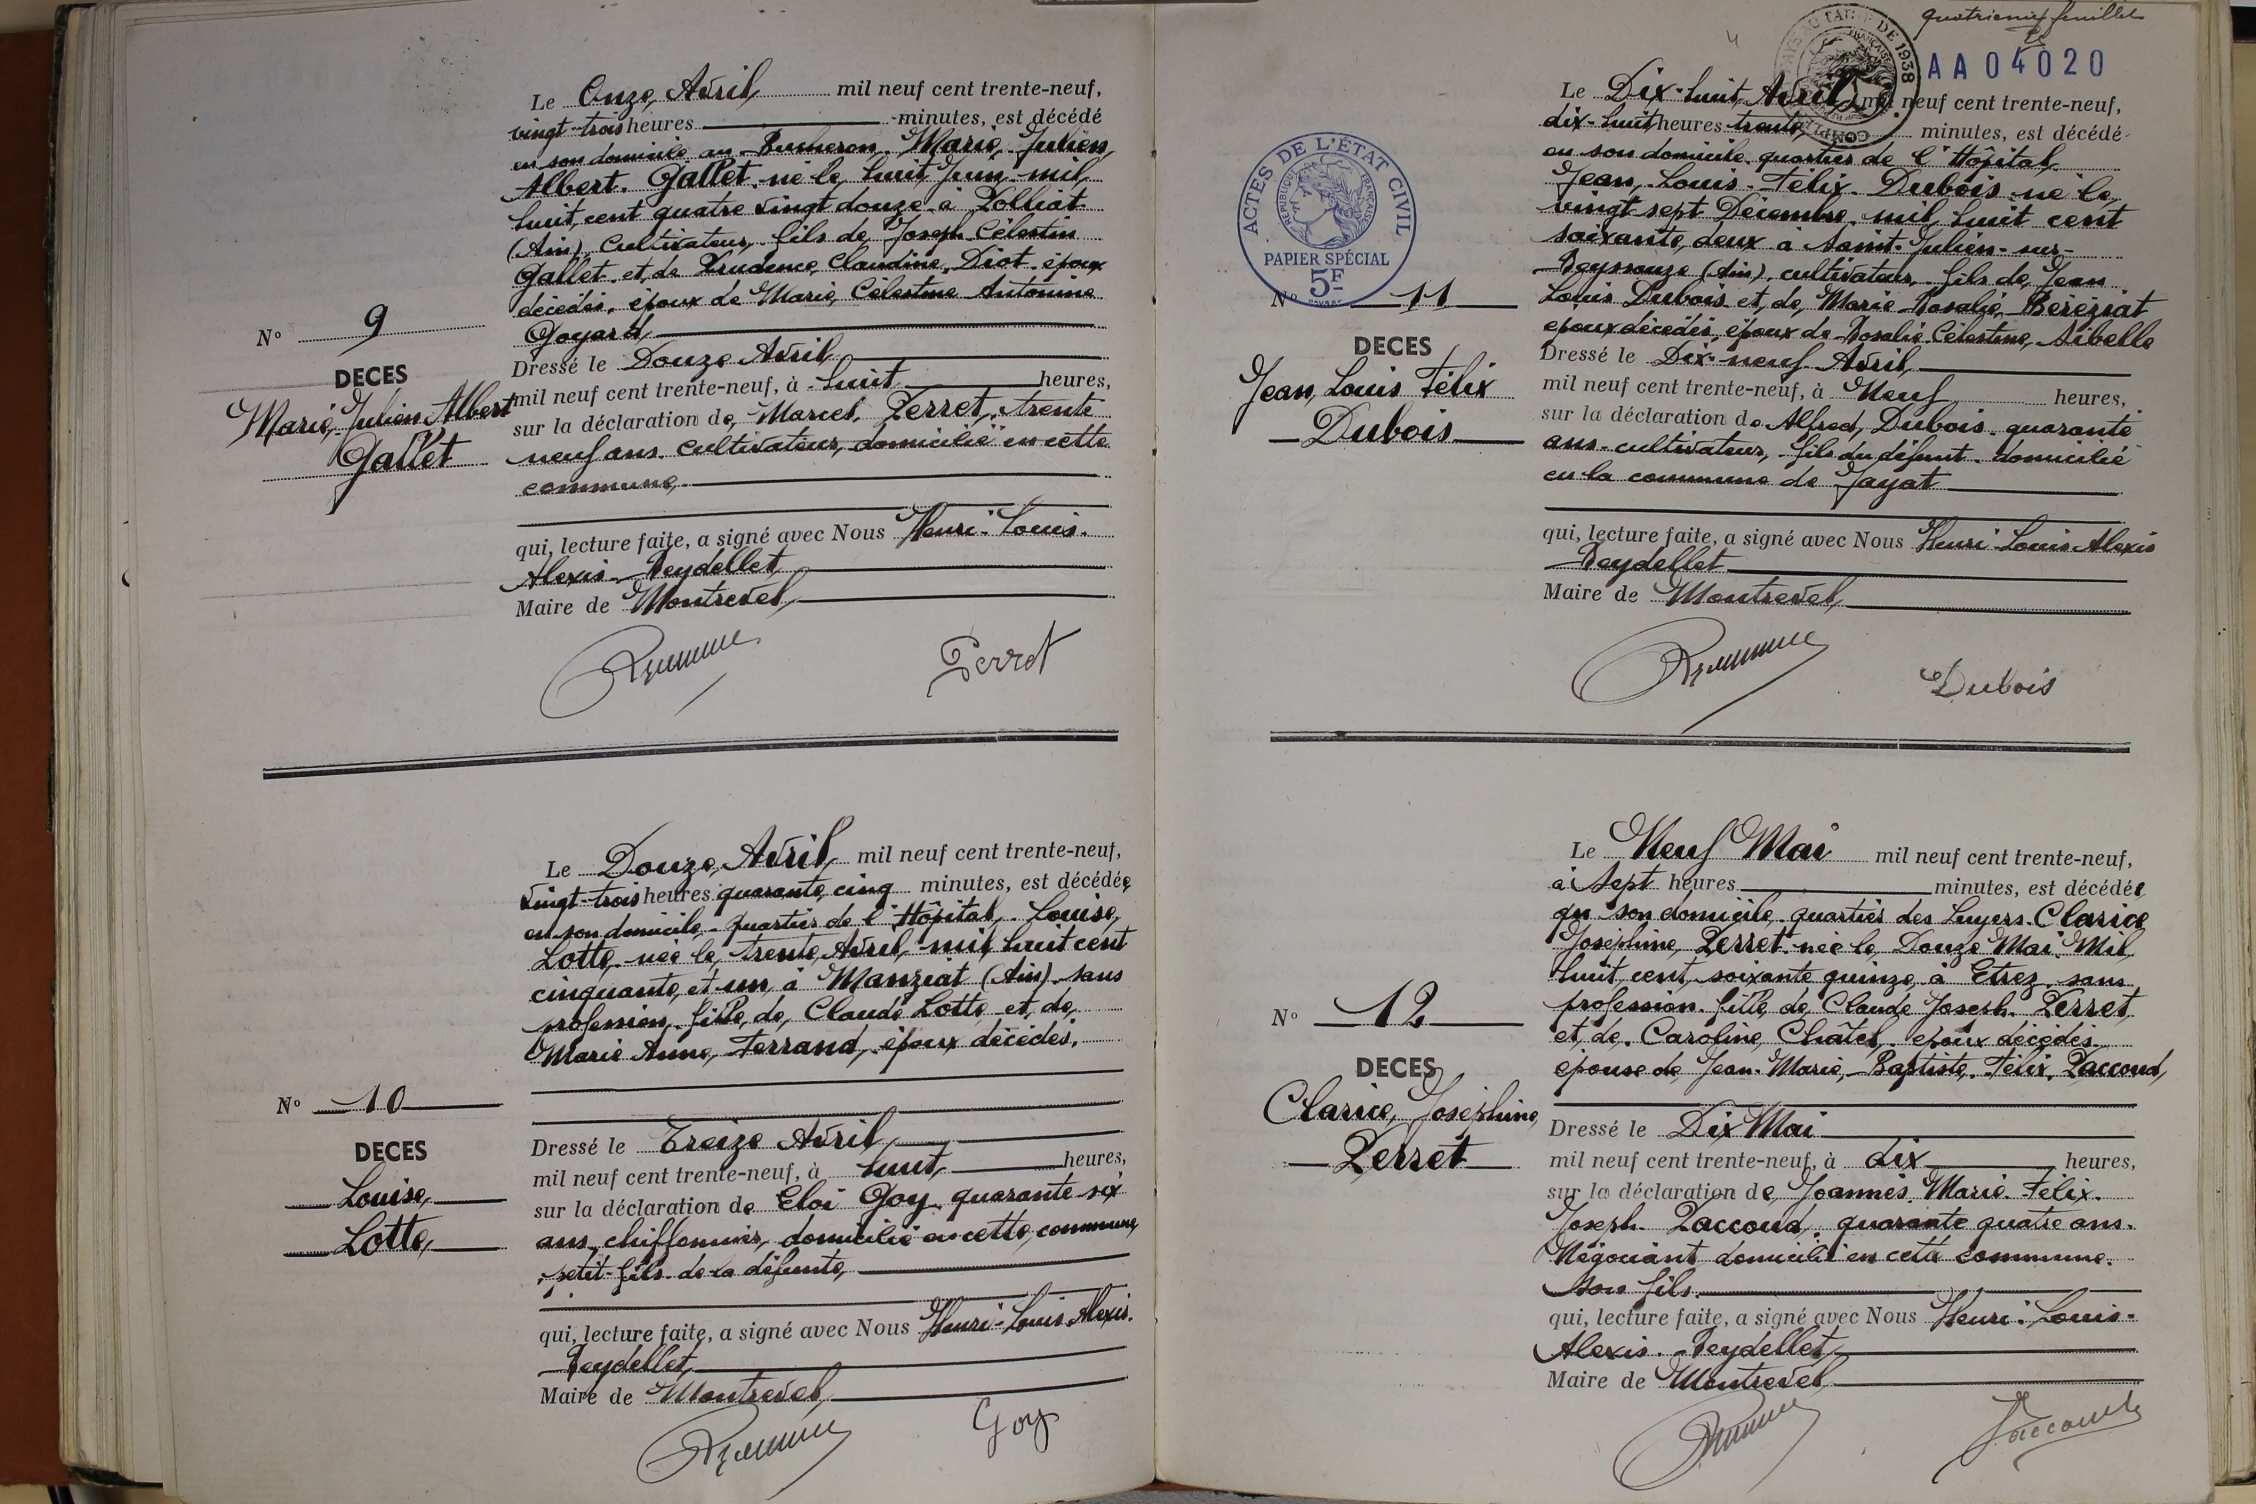 Le Onze Avril mil neuf cent trente-neuf,
vingt-trois heures minutes, est décédé
en son domicile au Bucheron. Marie, Julien,
Albert. Gallet. né le huit Juin mil
huit cent quatre vingt douze à Polliat
(Ain), Cultivateur, fils de Joseph Célestin
Gallet et de Prudence Claudine, Diot. époux
décédés, époux de Marie, Célestine Antonine
Goyard
N° 9
DECES
Marie, Julien Albert
Gallet
Dressé le Douze Avril
mil neuf cent trente-neuf, à huit heures,
sur la déclaration de Marcel Perret, trente
neuf ans. cultivateur, domicilié en cette
commune,
qui, lecture faite, a signé avec Nous Henri-Louis.
Alexis Peydellet
Maire de Montrevel
Perret
Le Douze Avril mil neuf cent trente-neuf,
vingt-trois heures quarante cinq minutes, est décédée
en son domicile quartier de l'Hôpital. Louise,
Lotte née le trente Avril mil huit cent
cinquante et un à Manziat (Ain) sans
profession. fille de Claude Lotte et de
Marie Anne, Ferrand, époux décédés.
N° 10
DECES
Louise
Lotte
Dressé le Treize Avril
mil neuf cent trente-neuf, à huit heures,
sur la déclaration de Eloi Goy quarante six
ans, chiffonnier, domicilié en cette commune
petit-fils de la défunte,
qui, lecture faite, a signé avec Nous Henri-Louis Alexis.
Peydellet
Maire de Montrevel
Goy
quatrième feuillet
AA04020
Le Dix-huit Avril mil neuf cent trente-neuf,
dix-huit heures trente minutes, est décédé
en son domicile quartier de l'Hôpital
Jean, Louis. Félix. Dubois né le
vingt-sept Décembre mil huit cent
soixante deux à Saint-Julien-sur-
Reyssouze (Ain), cultivateur, fils de Jean
Louis Dubois et de Marie Rosalie Béréziat
époux décédés, époux de Rosalie Célestine, Sibelle
ACTES DE L'ÉTAT CIVIL
RÉPUBLIQUE FRANÇAISE
PAPIER SPÉCIAL
5F
N° 11
DECES
Jean, Louis Félix
Dubois
Dressé le Dix-neuf Avril
mil neuf cent trente-neuf, à Neuf heures,
sur la déclaration de Alfred, Dubois quarante
ans cultivateur, fils du défunt domicilié
en la commune de Jayat
qui, lecture faite, a signé avec Nous Henri Louis Alexis
Peydellet
Maire de Montrevel
Dubois
Le Neuf Mai mil neuf cent trente-neuf,
à Sept heures minutes, est décédée
en son domicile quartier des Luyers. Clarice
Joséphine, Perret née le Douze Mai Mil
huit cent soixante quinze à Etrez sans
profession fille de Claude Joseph Perret
et de. Caroline Châtel, époux décédés
épouse de Jean-Marie, Baptiste, Félix, Paccoud,
N° 12
DECES
Clarice, Joséphine,
Perret
Dressé le Dix Mai
mil neuf cent trente-neuf, à dix heures,
sur la déclaration de Joannés Marie Félix.
Joseph Paccoud, quarante quatre ans.
Négociant domicilié en cette commune.
son fils.
qui, lecture faite, a signé avec Nous Henri-Louis-
Alexis. Peydellet
Maire de Montrevel
Paccoud